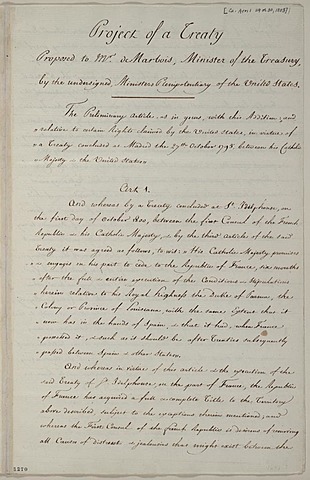 [Ca. April 29 or 30, 1803]
Project of a Treaty
Proposed to Mr. de Marbois, Minister of the Treasury,
by the undersigned Ministers Plenipotentiary of the United States.
The Preliminary Article, as in yours, with this Addition, and
relation to certain Rights claimed by the United States, in virtue of
a Treaty concluded at Madrid the 27th October 1795, between his Catholic
Majesty & the United States
Art. 1.
And whereas by a Treaty concluded at St. Ildephonso, on
the first day of October 1800, between the first Consul of the French
Republic & his Catholic Majesty, & by the third article of the said
Treaty it was agreed as follows, to wit: His Catholic Majesty promises
& engages in his part to cede to the Republic of France, six months
after the full & entire execution of the Conditions & Stipulations
herein relation to his Royal Highness the Duke of Parma, the
Colony or Province of Louisiana, with the same Extent that it
now has in the hands of Spain, & that it had, when France
possessed it, & such as it should be after Treaties subsequently
passed between Spain & other States.
And whereas in virtue of this article & the execution of the
said Treaty of St. Ildephonso, on the part of France, the Republic
of France has acquired a full & complete Title to the Territory
above described subject to the exceptions therein mentioned; and
whereas the First Consul of the French Republic is desirous of removing
all Cause of distrust & jealousies that might exist between the
1570